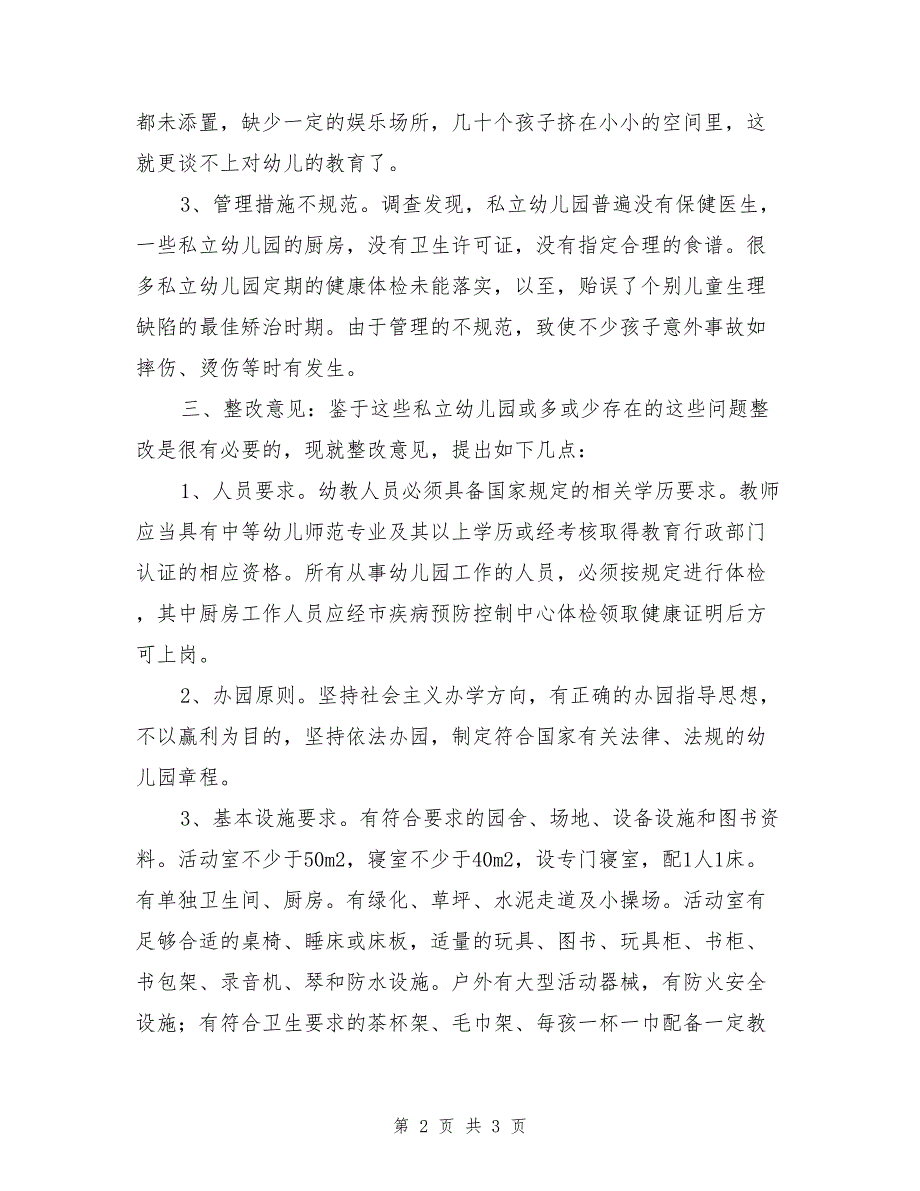 都未添置，缺少一定的娱乐场所，几十个孩子挤在小小的空间里，这
就更谈不上对幼儿的教育了。
3、管理措施不规范。调查发现，私立幼儿园普遍没有保健医生，
一些私立幼儿园的厨房，没有卫生许可证，没有指定合理的食谱。很
多私立幼儿园定期的健康体检未能落实，以至，贻误了个别儿童生理
缺陷的最佳矫治时期。由于管理的不规范，致使不少孩子意外事故如
摔伤、烫伤等时有发生。
三、整改意见：鉴于这些私立幼儿园或多或少存在的这些问题整
改是很有必要的，现就整改意见，提出如下几点：
1、人员要求。幼教人员必须具备国家规定的相关学历要求。教师
应当具有中等幼儿师范专业及其以上学历或经考核取得教育行政部门
认证的相应资格。所有从事幼儿园工作的人员，必须按规定进行体检
，其中厨房工作人员应经市疾病预防控制中心体检领取健康证明后方
可上岗。
2、办园原则。坚持社会主义办学方向，有正确的办园指导思想，
不以赢利为目的，坚持依法办园，制定符合国家有关法律、法规的幼
儿园章程。
3、基本设施要求。有符合要求的园舍、场地、设备设施和图书资
料。活动室不少于50m2，寝室不少于40m2，设专门寝室，配1人1床。
有单独卫生间、厨房。有绿化、草坪、水泥走道及小操场。活动室有
足够合适的桌椅、睡床或床板，适量的玩具、图书、玩具柜、书柜、
书包架、录音机、琴和防水设施。户外有大型活动器械，有防火安全
设施；有符合卫生要求的茶杯架、毛巾架、每孩一杯一巾配备一定教
第 2 页 共 3 页